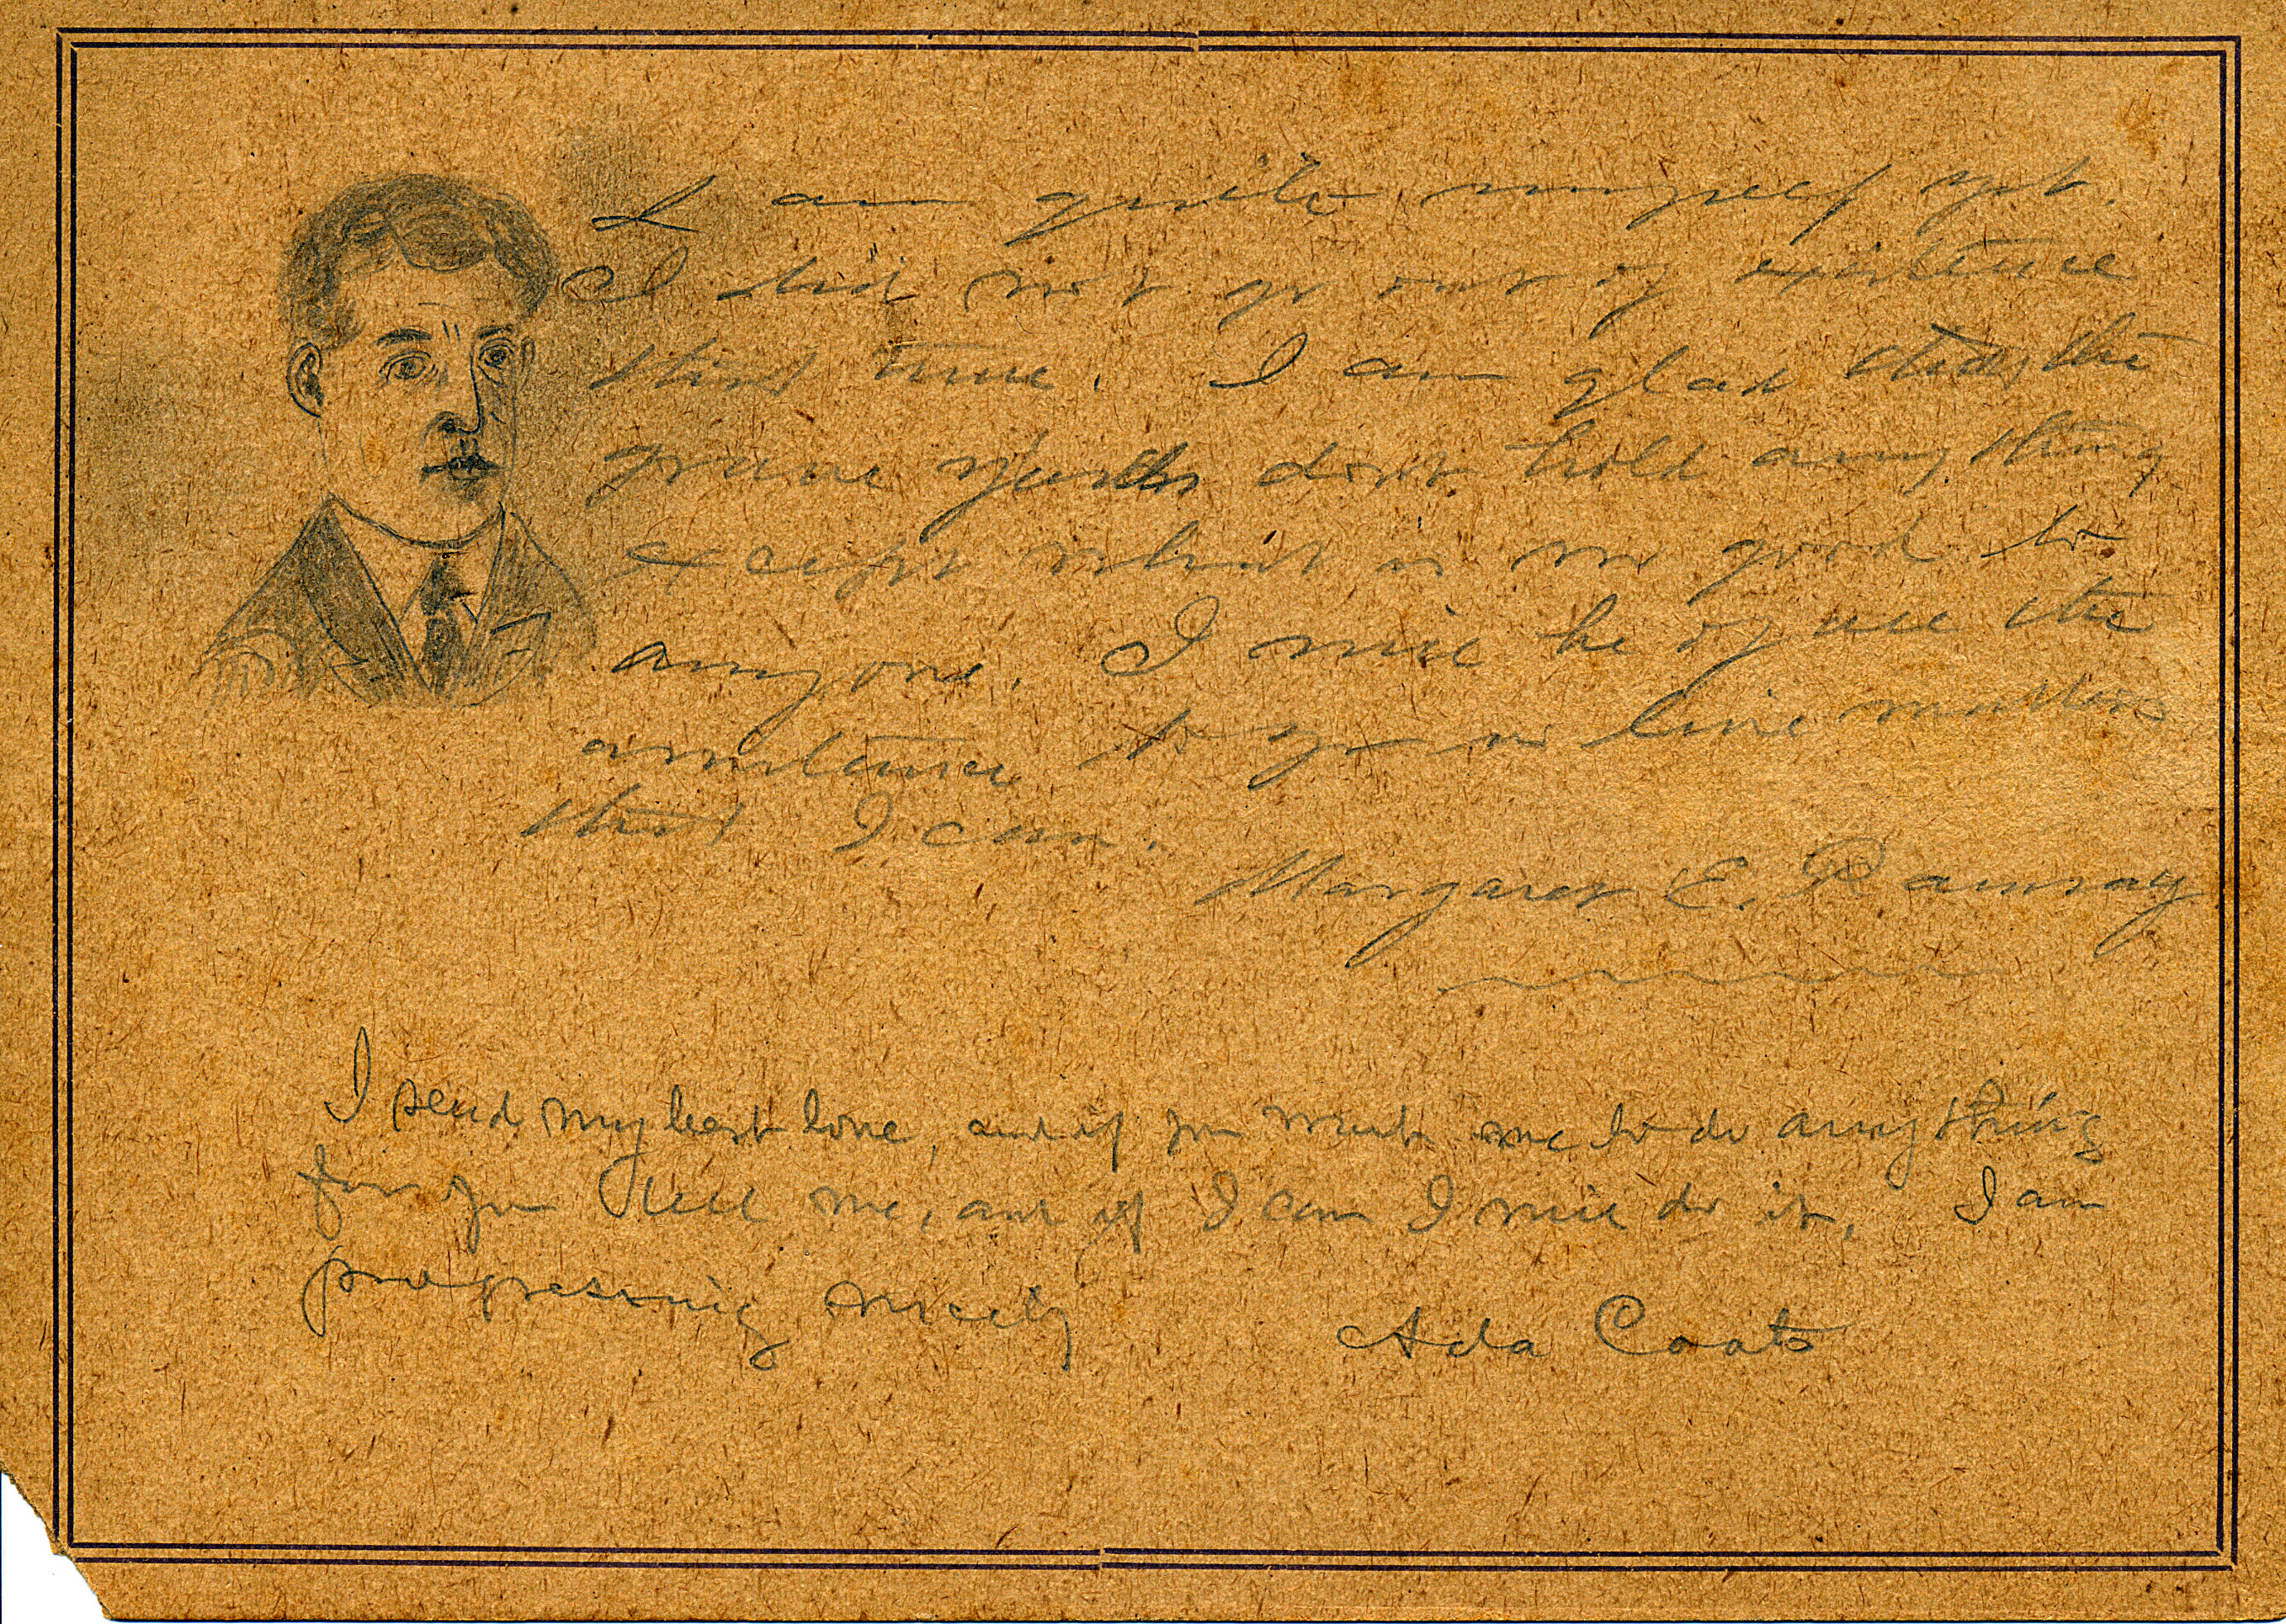 I am quite myself yet.
I did not go out of existence
that time. I am glad that the
grave yards dont hold anything
except what is no good to
anyone. I will be of all the
assistance to you in live matters
that I can.
Margaret E. Ramsay
I send my best love, and if you want me to do anything
for you tell me, and if I can I will do it, I am
progressing nicely
Ada Coats